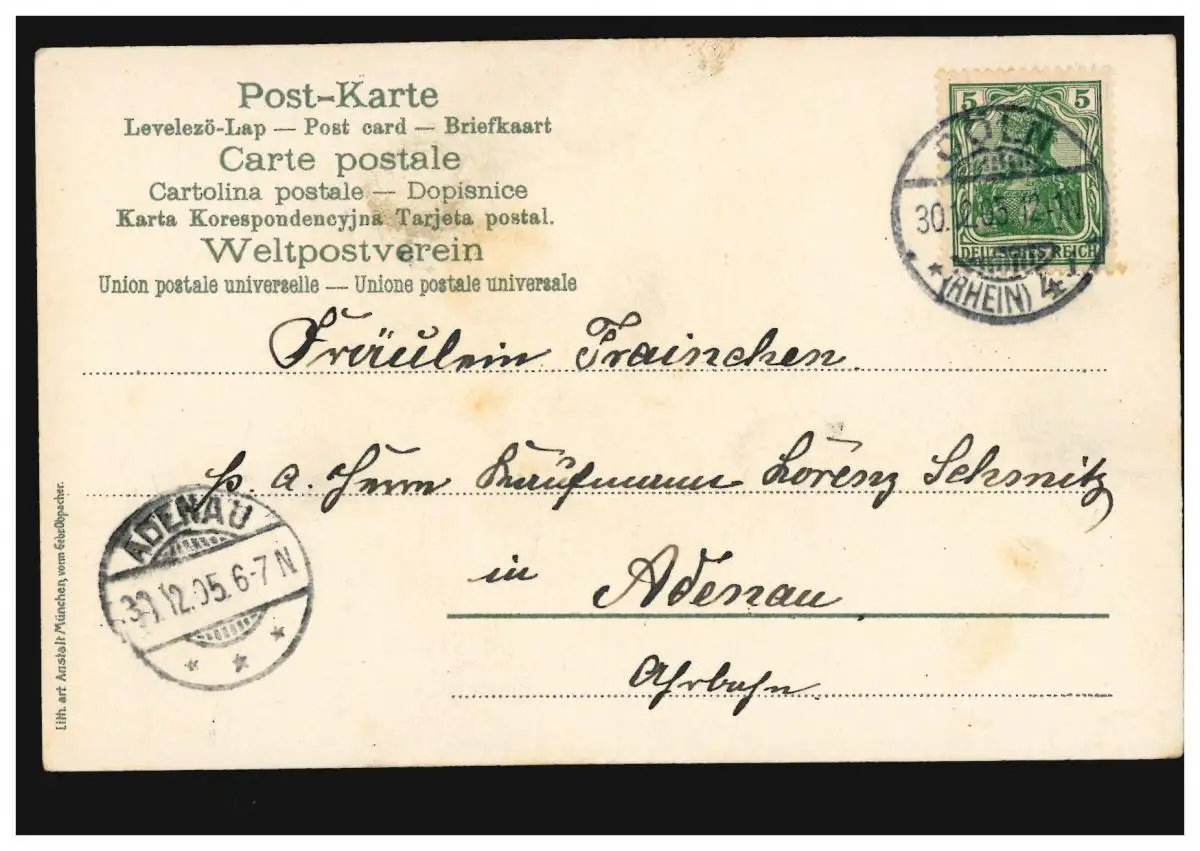 Post-Karte
Levelezö-Lap — Post card — Briefkaart
Carte postale
Cartolina postale — Dopisnice
Karta Korespondencyjna Tarjeta postal.
Weltpostverein
Union postale universelle — Unione postale universale
5 5
DEUTSCHES REICH
CÖLN
30.12.05. 12-1N
* (RHEIN) 4
Fräulein Trainchen
p. a. Herrn Kaufmann Lorenz Schmitz
in Adenau
Ahrbahn
ADENAU
30.12.05. 6-7 N
* * *
Lith. art Anstalt München, vorm Gebr. Obpacher.